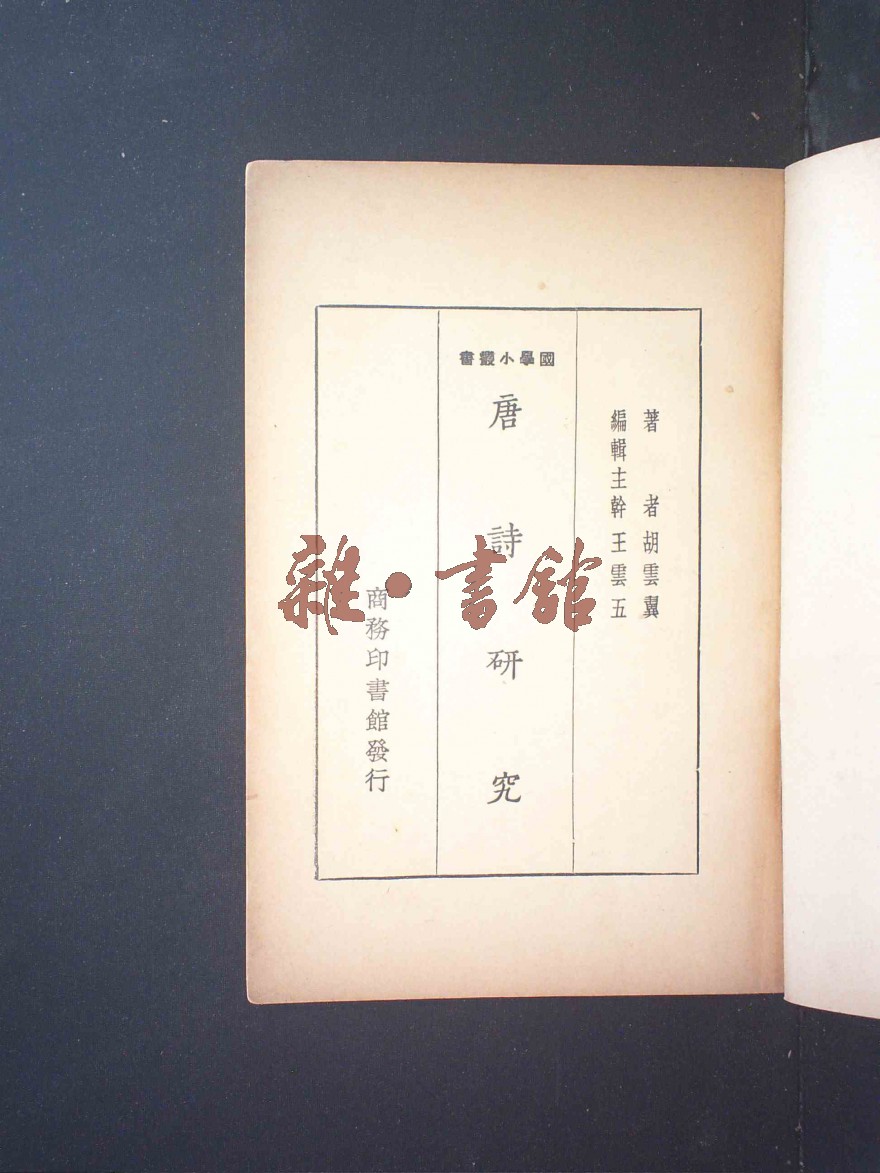 著者胡雲翼
編輯主幹王雲五
國學小叢書
唐詩研究
商務印書館發行
雜·書館